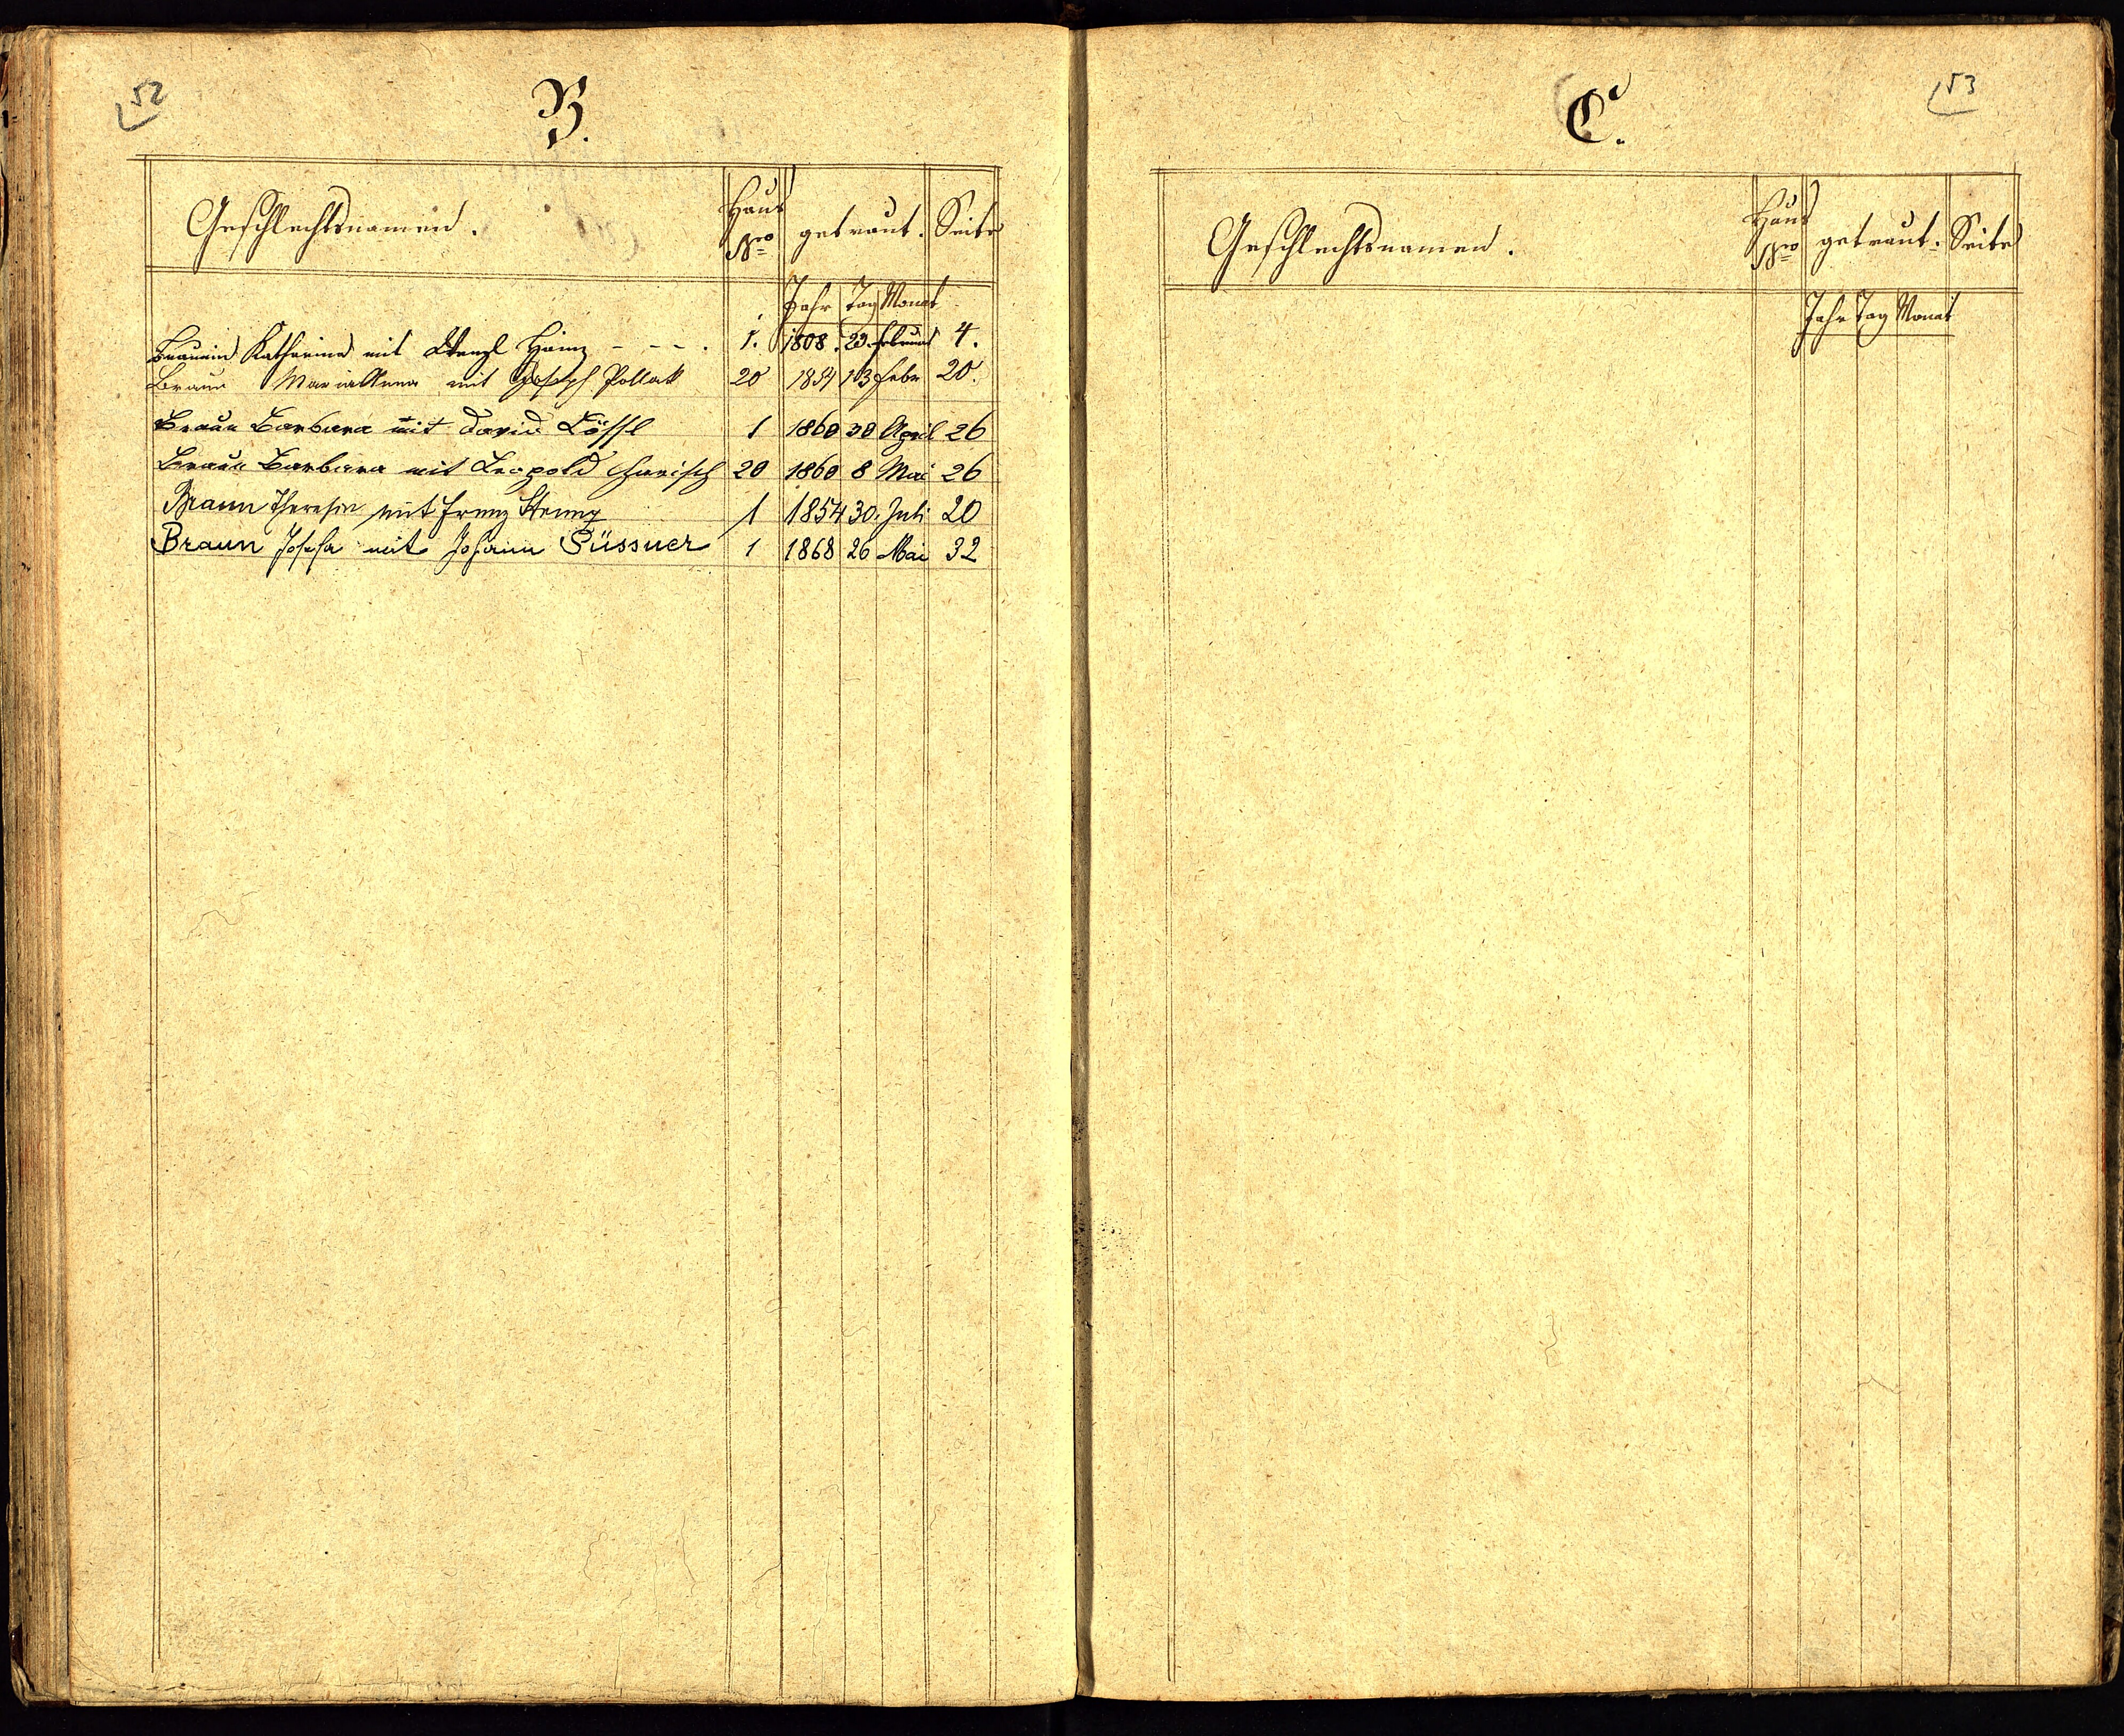 52
B.
Geschlechtsnamen. Haus Nro getraut. Seite
Jahr Tag Monat
Braunin Katharina mit Wenzl Heinz - - - . 1. 1808. 23. Februar 4.
Braun Maria Anna mit Joseph Pollak 20 1854 13 Febr 20.
Braun Barbara mit David Lössl 1 1860 30 April 26
Braun Barbara mit Leopold Harisch 20 1860 8 Mai 26
Braun Theresia mit Franz 1 1854 30. Juli 20
Braun Josefa mit Johann Süssner 1 1868 26 Mai 32
53
C.
Geschlechtsnamen. Haus Nro getraut. Seite
Jahr Tag Monat